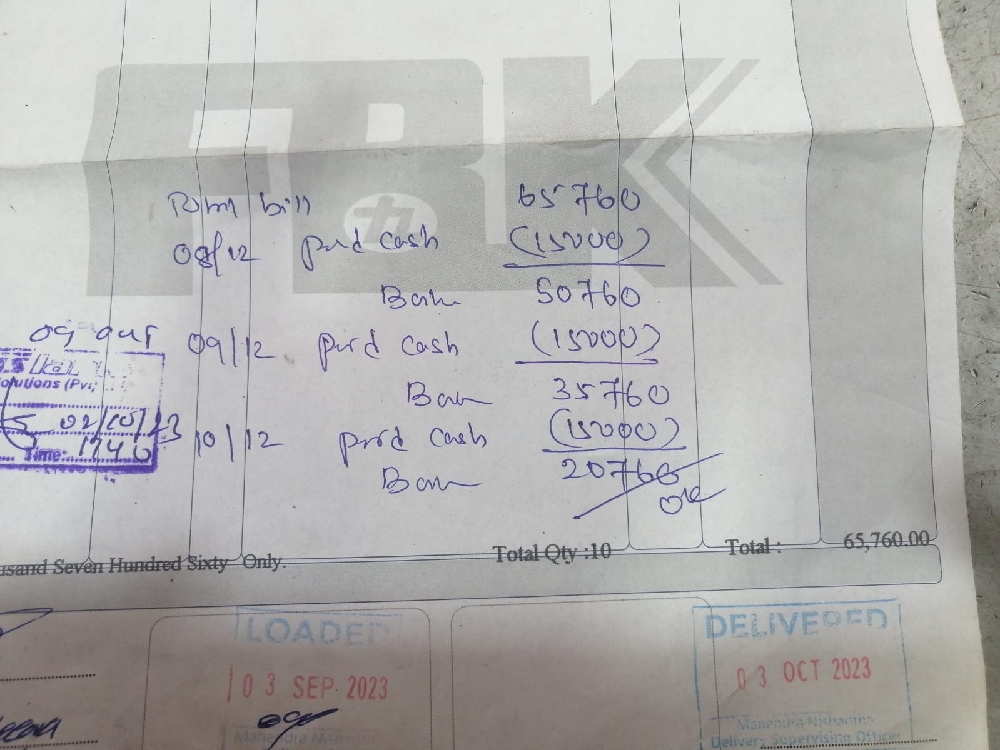 FBK
Rum bill 65760
08/12 paid cash (15000)
Bal 50760
09/12 paid cash (15000)
Bal 35760
10/12 paid cash (15000)
Bal 20760
OK
09 out
olutions (Pvt)
02/10/23
Time: 1740
usand Seven Hundred Sixty Only. Total Qty :10 Total : 65,760.00
LOADED
03 SEP 2023
Mahendra Nish
DELIVERED
03 OCT 2023
Mahendra Nishantha
Delivery Supervising Officer